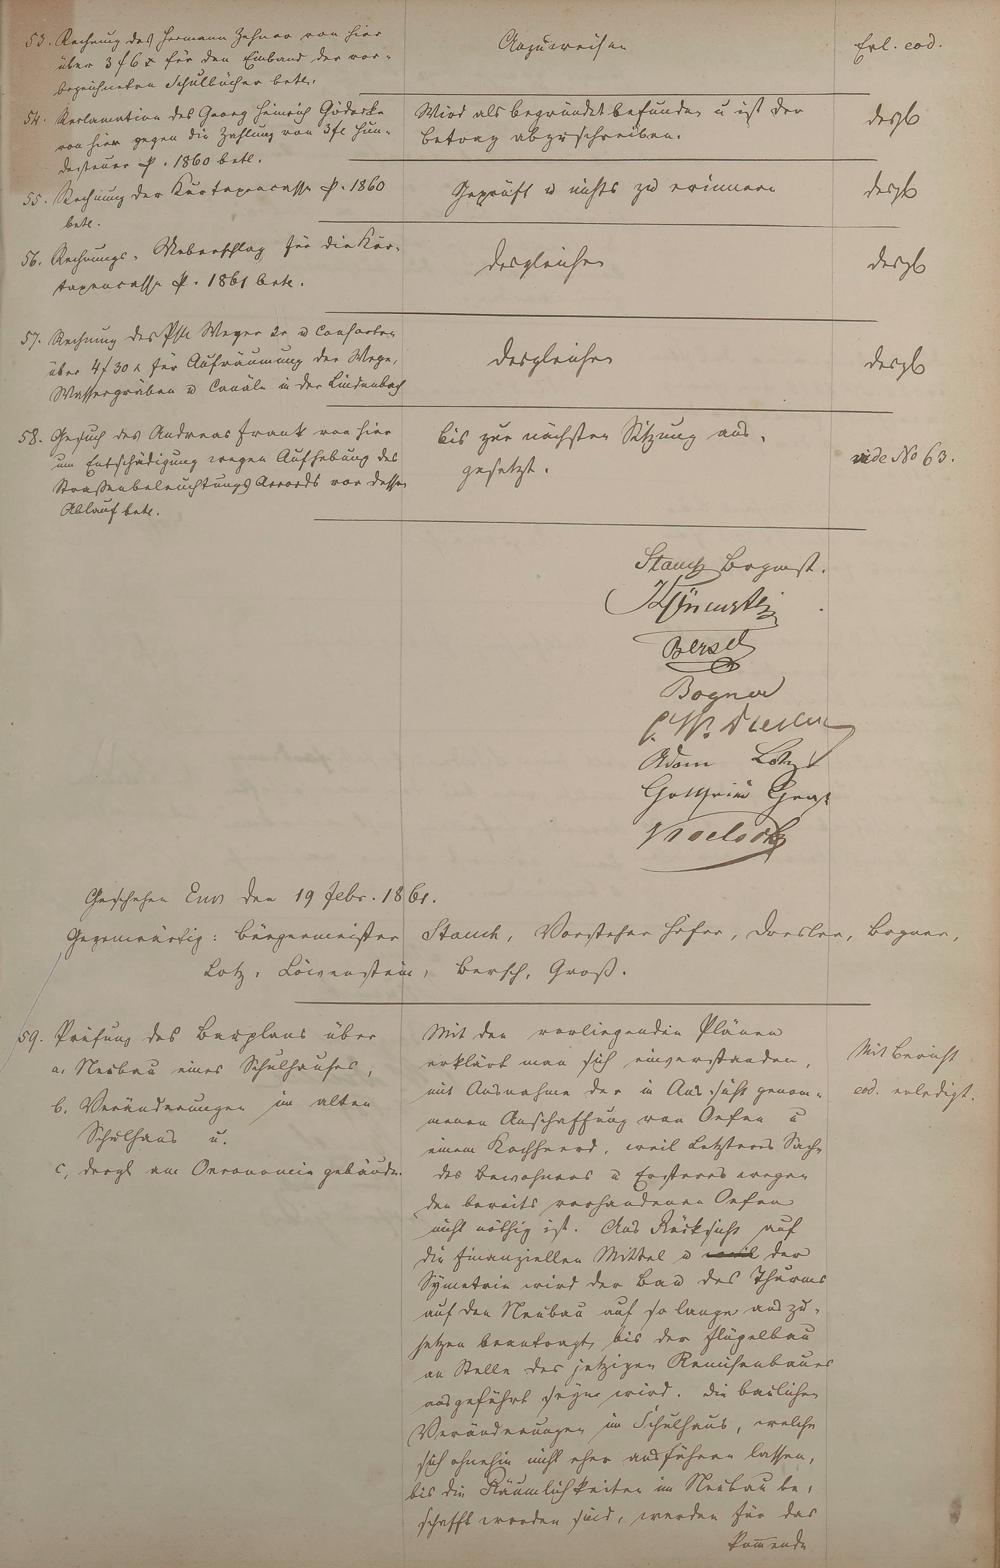 53. Rechnung des Hermann Zehner von hier
über 3 f 6 x für den Einband der vor-
bezeichneten Schulbücher betr.
Anzuweisen
Erl. eod.
54. Reclamation des Georg Heinrich Gödecke
von hier gegen die Zahlung von 3 fl Hun-
desteuer p. 1860 betr.
Wird als begründet befunden u ist der
Betrag abzuschreiben.
desgl
55. Rechnung der Kurtaxencasse p. 1860
betr.
Geprüft u nichts zu erinnern
desgl
56. Rechnungs-Ueberschlag für die Kur-
taxencasse p. 1861 betr.
desgleichen
desgl
57. Rechnung des Phil Weyer 2r u Consorten
über 4 f 30 x für Aufräumung der Wege,
Wassergräben u Canäle in der Lindenbach
desgleichen
desgl
58. Gesuch des Andreas Frank von hier
um Entschädigung wegen Aufhebung des
Straßenbeleuchtungs Accords vor dessen
Ablauf betr.
bis zur nächsten Sitzung aus-
gesetzt.
vide No 63.
Stauch Bogmst.
Bersch
Bogner
Adam Lotz
Geschehen Ems den 19 Febr. 1861.
Gegenwärtig: Bürgermeister Stauch, Vorsteher Höfer, Dresler, Bogner,
Lotz, Löwenstein, Bersch, Groß.
59. Prüfung des Bauplans über
a. Neubau eines Schulhauses,
b. Veränderungen im alten
Schulhaus u.
c, dergl am Oeconomiegebäude
Mit den vorliegenden Plänen
erklärt man sich einverstanden,
mit Ausnahme der in Aussicht genom-
menen Anschaffung von Oefen u
einem Kochheerd, weil Letzteres Sache
des Bewohners u Ersteres wegen
den bereits vorhandenen Oefen
nicht nöthig ist. Aus Rücksicht auf
die finanziellen Mittel u der
Symetrie wird der Bau des Thurms
auf den Neubau auf so lange auszu-
setzen beantragt, bis der Flügelbau
an Stelle des jetzigen Remisenbaues
ausgeführt seyn wird. Die baulichen
Veränderungen im Schulhaus, welche
sich ohnehin nicht eher ausführen lassen,
bis die Räumlichkeiten im Neubau be-
schafft worden sind, werden für das
kommende
Mit Bericht
eod. erledigt.